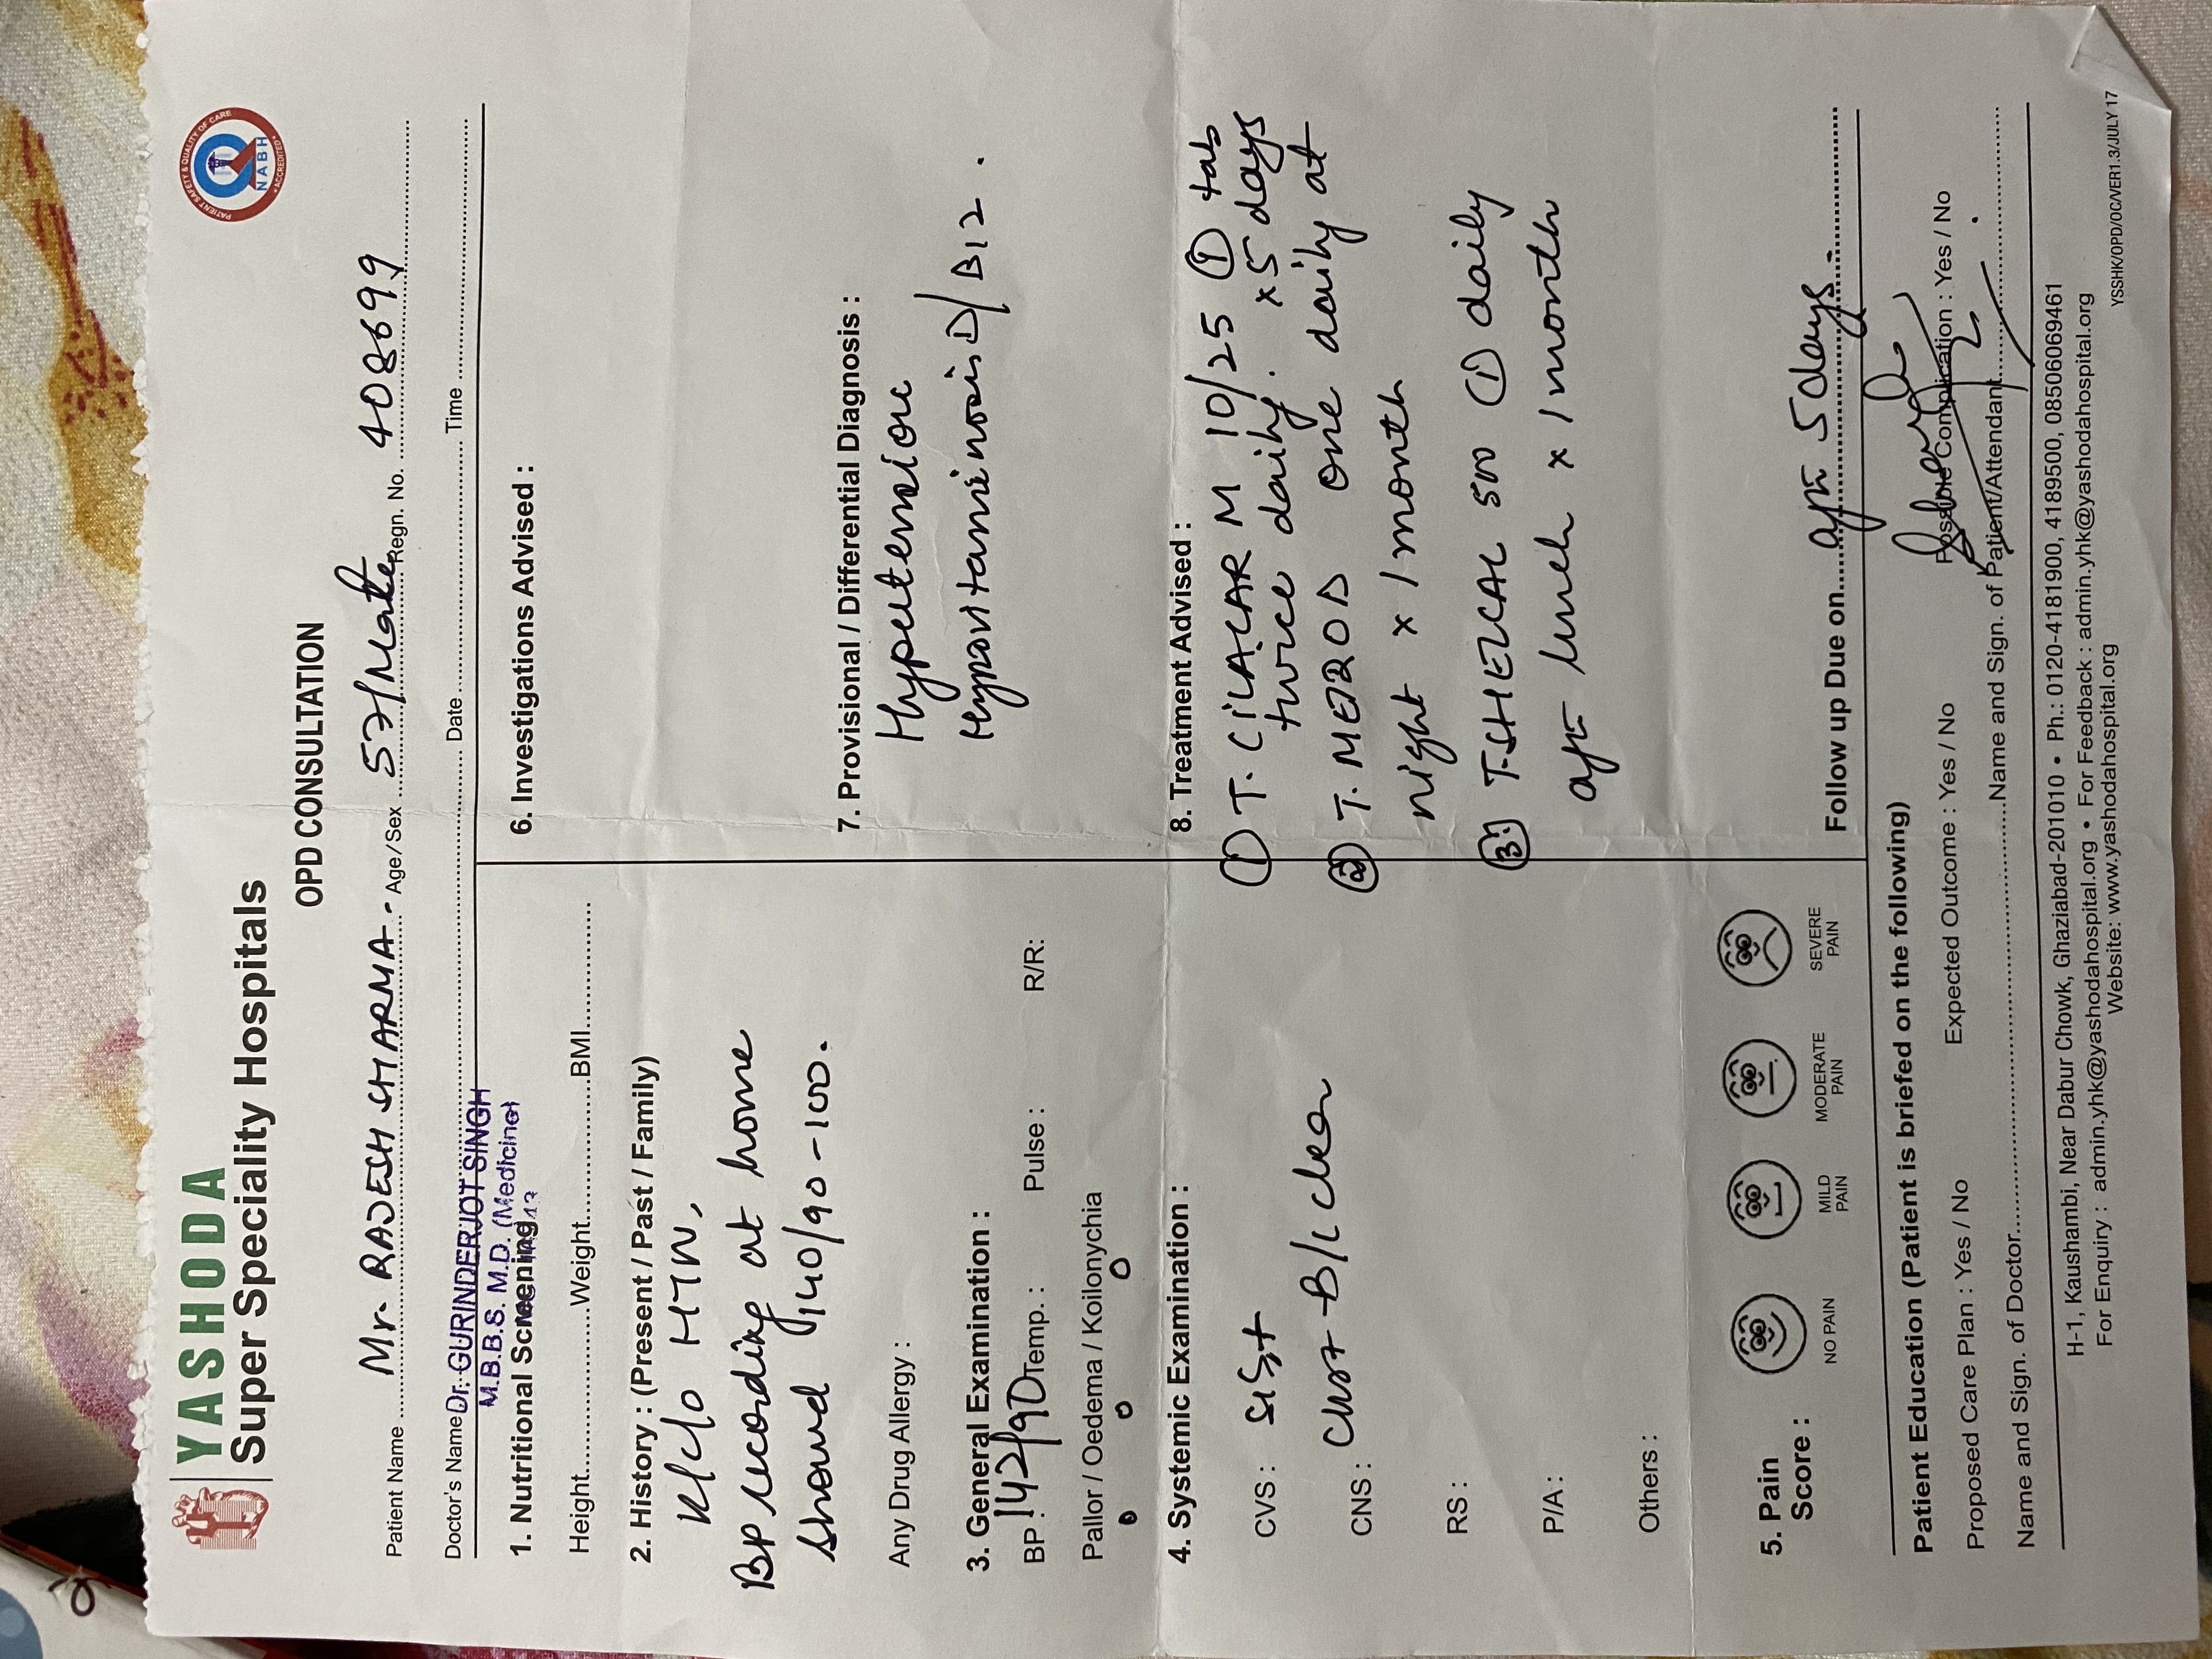 YASHODA
Super Speciality Hospitals
PATIENT SAFETY & QUALITY OF CARE
NABH
ACCREDITED
OPD CONSULTATION
Patient Name Mr. RAJESH SHARMA. Age/Sex 57/Male Regn. No. 408699
Doctor's Name Dr. GURINDERJOT SINGH Date Time
M.B.B.S. M.D. (Medicine)
1. Nutritional Screening
Height Weight BMI
2. History : (Present / Past / Family)
K/c/o HTN,
BP recording at home
showd 140/90-100.
Any Drug Allergy :
3. General Examination :
BP : 142/90 Temp. : Pulse : R/R:
Pallor / Oedema / Koilonychia
o o o
4. Systemic Examination :
CVS : S1S2+
Chest B/L clear
CNS :
RS :
P/A :
Others :
5. Pain
Score :
NO PAIN
MILD
PAIN
MODERATE
PAIN
SEVERE
PAIN
6. Investigations Advised :
7. Provisional / Differential Diagnosis :
Hypertension
Hypovitaminosis D/B12.
8. Treatment Advised :
① T. CILACAR M 10/25 ① tab
twice daily. x5 days
② T. one daily at
night x 1 month
③ T. SHELCAL 500 ① daily
after lunch x 1 month
Follow up Due on after 5 days.
Patient Education (Patient is briefed on the following)
Proposed Care Plan : Yes / No Expected Outcome : Yes / No Possible Complication : Yes / No
Name and Sign. of Doctor Name and Sign. of Patient/Attendant
H-1, Kaushambi, Near Dabur Chowk, Ghaziabad-201010 • Ph.: 0120-4181900, 4189500, 08506069461
For Enquiry : admin.yhk@yashodahospital.org • For Feedback : admin.yhk@yashodahospital.org
Website: www.yashodahospital.org
YSSHK/OPD/OC/VER1.3/JULY 17